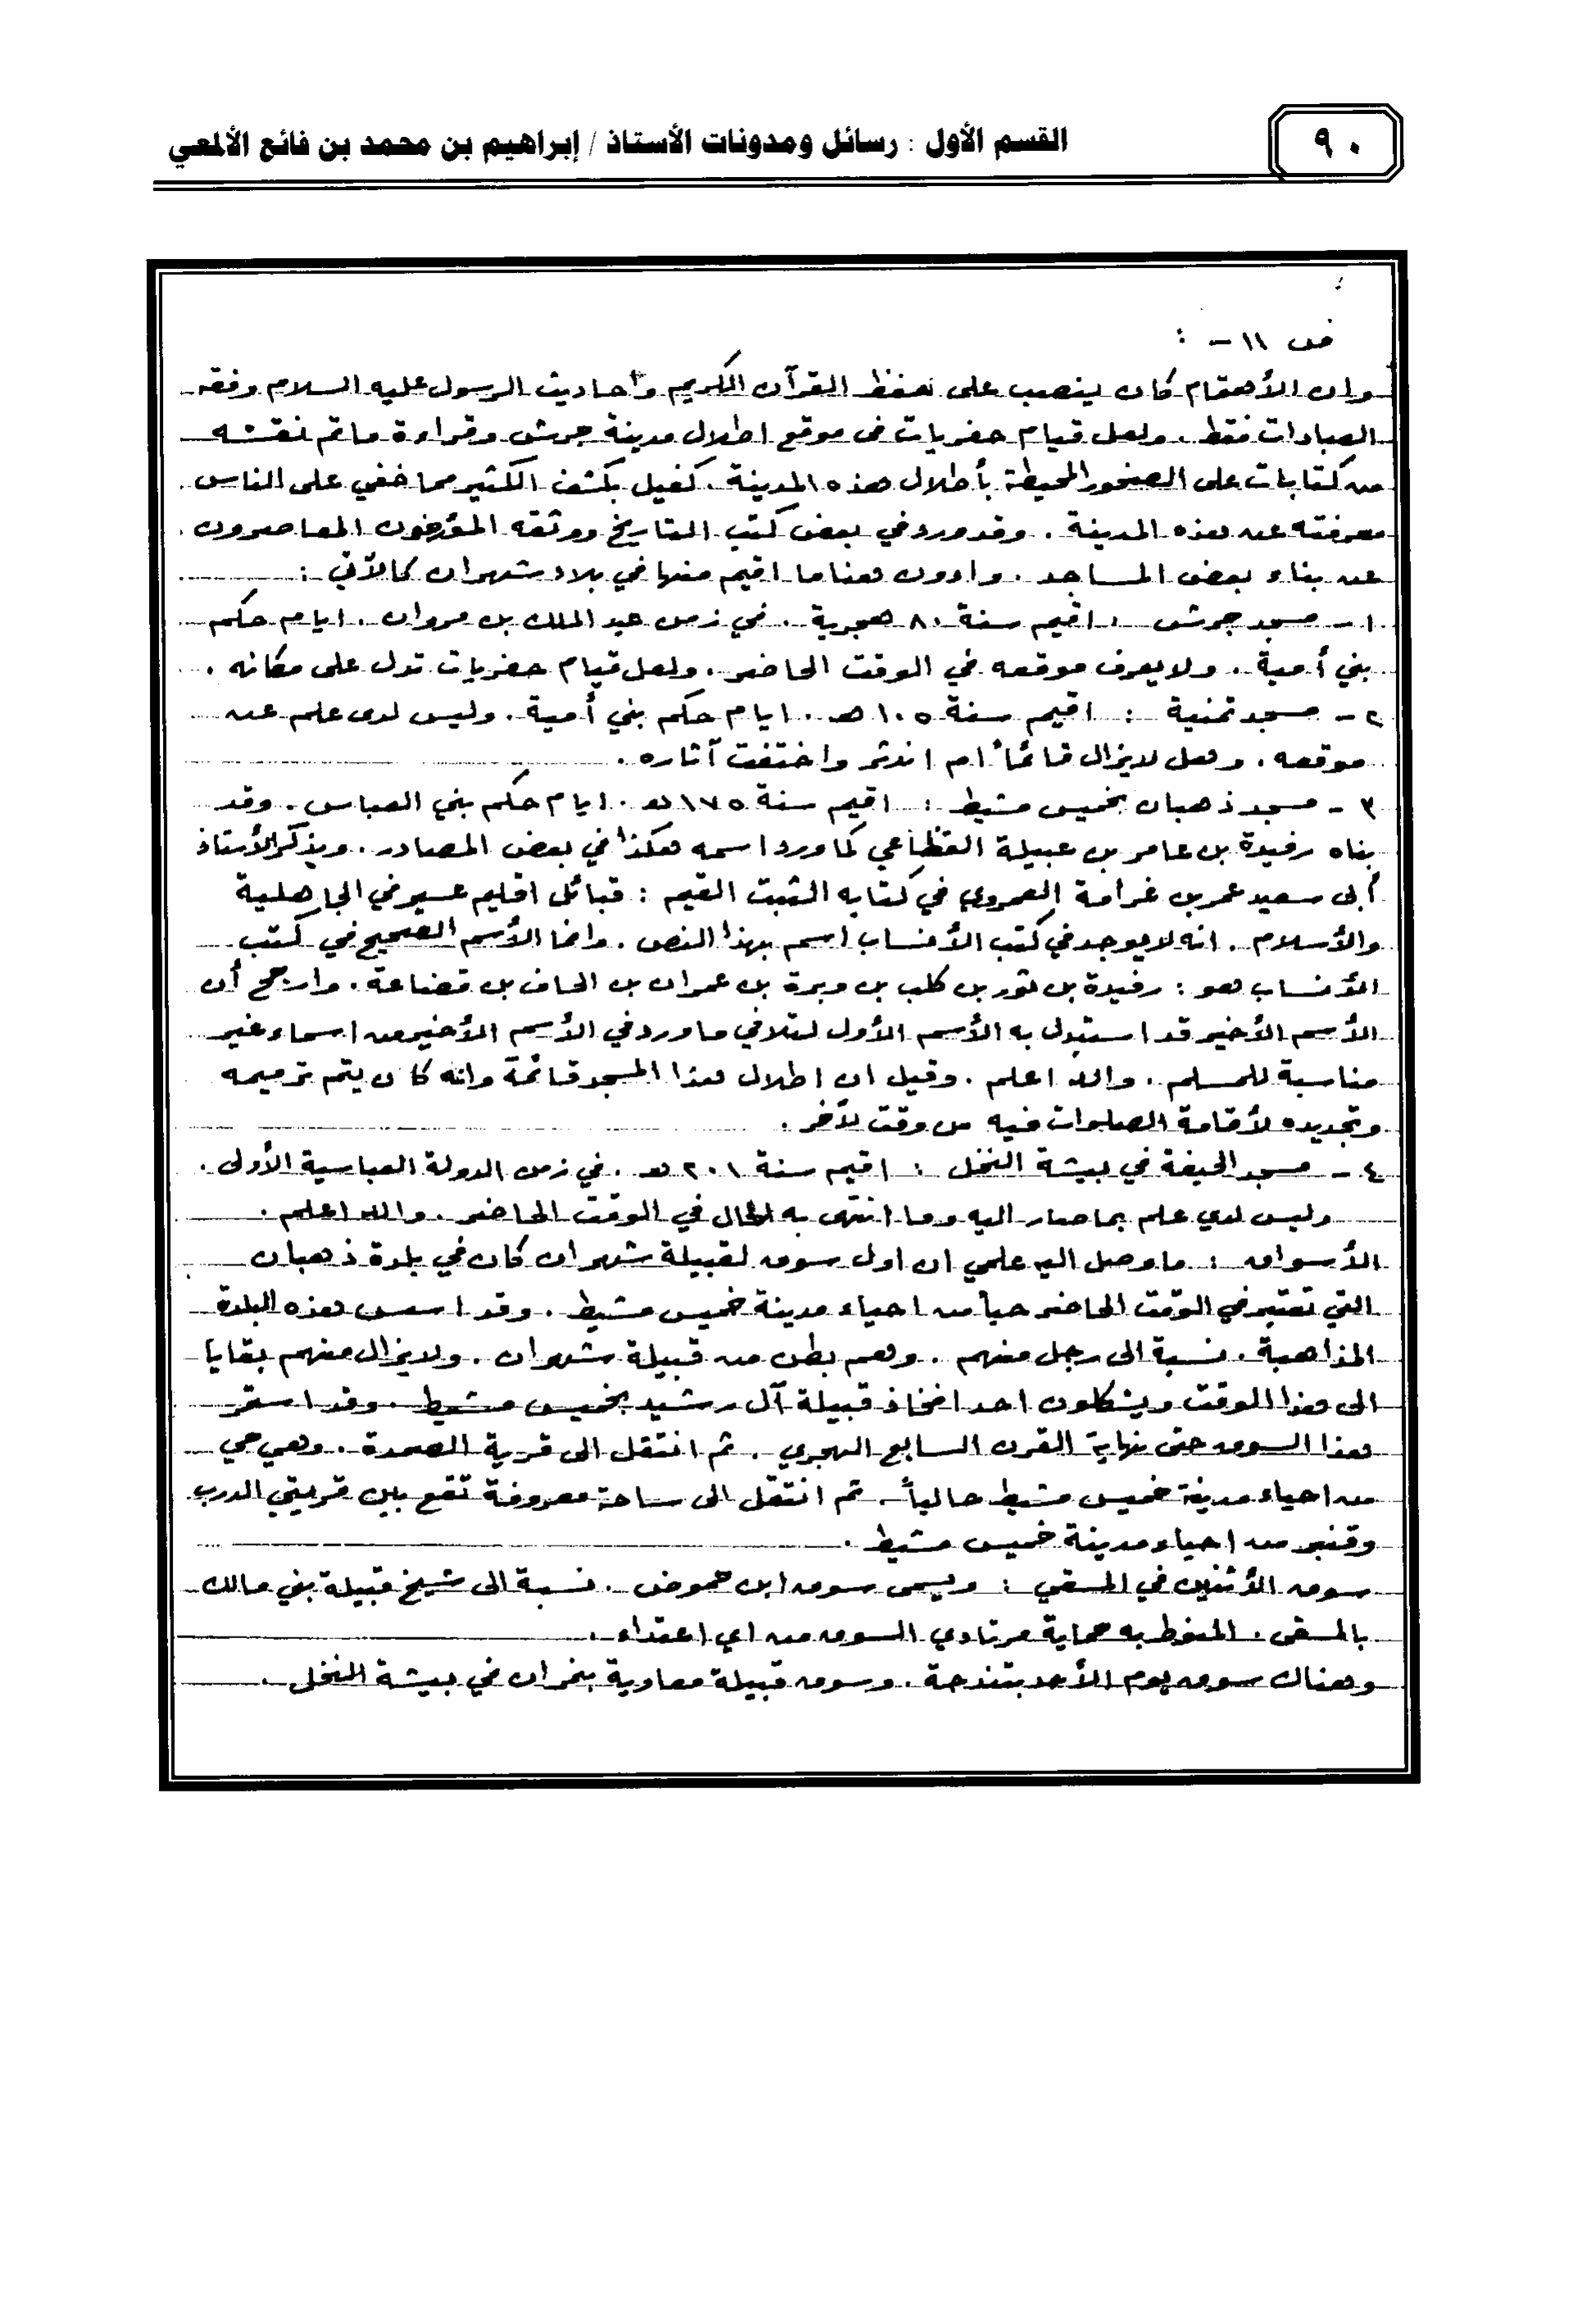 ٩٠
القسم الأول : رسائل ومدونات الأستاذ / إبراهيم بن محمد بن فائع الألمعي
ص ١١ – :
وان الأهتمام كان ينصب على حفظ القرآن الكريم وأحاديث الرسول عليه السلام وفقه
العبادات فقط . ولعل قيام حفريات في موقع اطلال مدينة جرش وقراءة ماتم نقشه
من كتابات على الصخور المحيطة بأطلال هذه المدينة . كفيل بكشف الكثير مما خفي على الناس
معرفته عن هذه المدينة . وقد ورد في بعض كتب التاريخ ووثقه المؤرخون المعاصرون
عن بناء بعض المساجد . وادون هنا ما اقيم منها في بلاد شهران كالآتي :
١ – مسجد جرش : اقيم سنة ٨٠ هجرية . في زمن عبد الملك بن مروان . ايام حكم
بني أمية . ولا يعرف موقعه في الوقت الحاضر . ولعل قيام حفريات تدل على مكانه .
٢ – مسجد تمنية : اقيم سنة ١٠٥ هـ . ايام حكم بني أمية . وليس لدى علم عن
موقعه . وهل لايزال قائماً أم اندثر واختفت آثاره .
٣ – مسجد ذهبان بخميس مشيط : اقيم سنة ١٧٥ هـ . ايام حكم بني العباس . وقد
بناه رفيدة بن عامر بن عبيلة القطاعي كما ورد اسمه هكذا في بعض المصادر . ويذكر الأستاذ
أبى سعيد عمر بن غرامة العمروي في كتابه الثبت القيم : قبائل اقليم عسير في الجاهلية
والأسلام . انه لايوجد في كتب الأنساب اسم بهذا النص . وانما الأسم الصحيح في كتب
الأنساب هو : رفيدة بن ثور بن كلب بن وبرة بن عمران بن الحاف بن قضاعة . وارجح أن
الأسم الأخير قد استبدل به الأسم الأول لتلافي ماورد في الأسم الأخير من اسماء غير
مناسبة للمسلم . والله اعلم . وقيل ان اطلال هذا المسجد قائمة وانه كان يتم ترميمه
وتجديده لأقامة الصلوات فيه من وقت لآخر .
٤ – مسجد الحيفة في بيشة النخل : اقيم سنة ٢٠١ هـ . في زمن الدولة العباسية الأولى .
وليس لدي علم بما صار اليه وما انتهى به الحال في الوقت الحاضر . والله اعلم .
الأسواق : ما وصل اليه علمي ان اول سوق لقبيلة شهران كان في بلدة ذهبان
التي تعتبر في الوقت الحاضر حياً من احياء مدينة خميس مشيط . وقد اسس هذه البلدة
الذاهبة . نسبة الى رجل منهم . وهم بطن من قبيلة شهران . ولايزال منهم بقايا
الى هذا الوقت ويشكلون احد افخاذ قبيلة آل رشيد بخميس مشيط . وقد استمر
هذا السوق حتى نهاية القرن السابع الهجري . ثم انتقل الى قرية الصمدة . وهي حي
من احياء مدينة خميس مشيط حالياً . ثم انتقل الى ساحة معروفة تقع بين قريتي الدرب
وقنبر من احياء مدينة خميس مشيط .
سوق الأثنين في المسقي : ويسمى سوق ابن حموض . نسبة الى شيخ قبيلة بني مالك
بالمسقى . المنوط به حماية مرتادي السوق من اي اعتداء .
وهناك سوق يوم الأحد بتندحة . وسوق قبيلة معاوية بنمران في بيشة النخل .